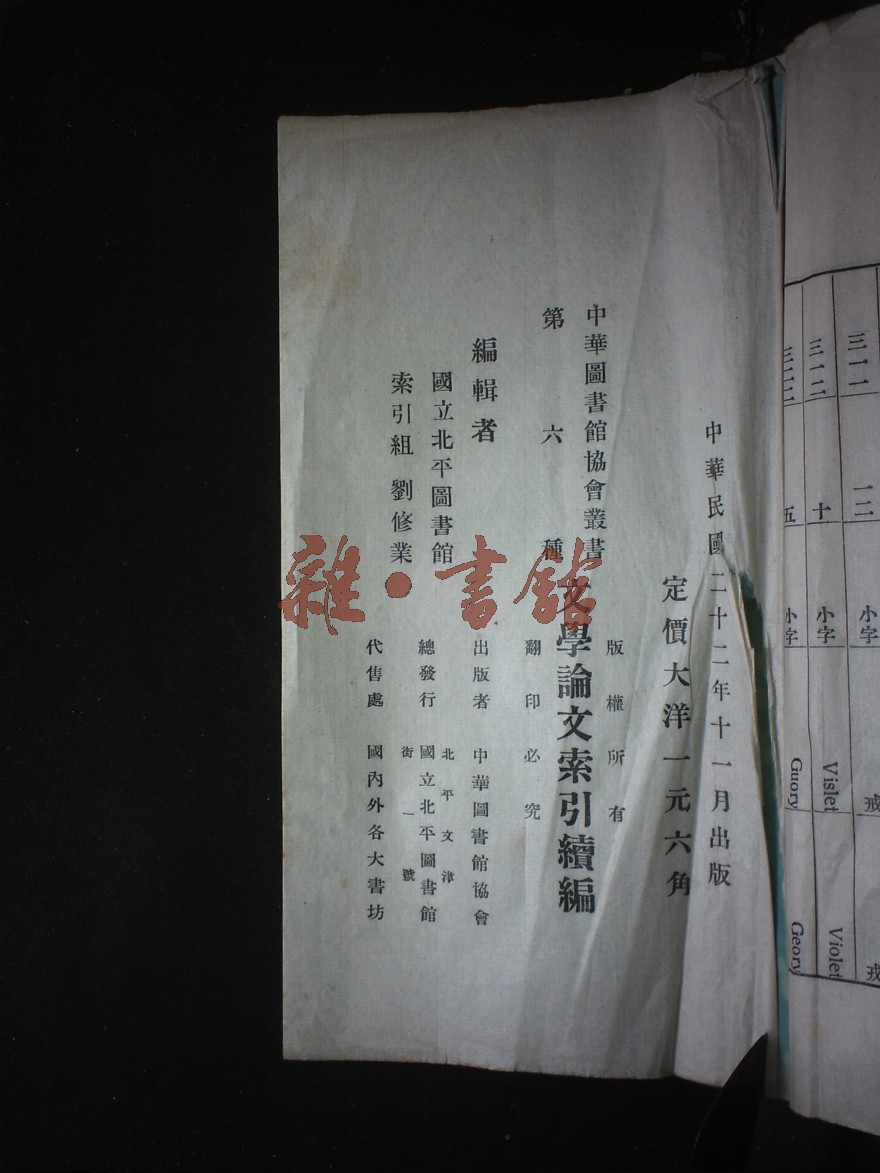 三一一
一二
小字
戎
戎
三一二
十
小字
Vislet
Violet
三二三
五
小字
Guory
Geory
中華民國二十二年十一月出版
定價大洋一元六角
版權所有
中華圖書館協會叢書
第六種
文學論文索引續編
翻印必究
編輯者
國立北平圖書館
索引組 劉修業
出版者 中華圖書館協會
北平文津
總發行 國立北平圖書館
街一號
代售處 國內外各大書坊
雜·書館